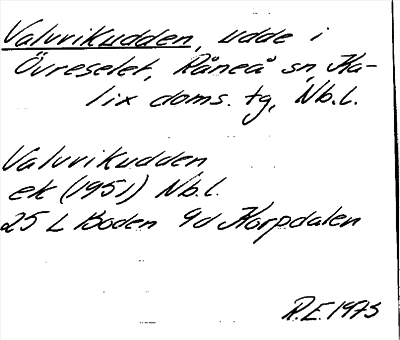 Valvrikudden, udde i
Övreselet, Råneå sn, Ka-
lix doms. tg, Nb.l.
Valvrikudden
ek (1951) Nb.l.
25 L Boden 9d Korpdalen
R.E. 1975